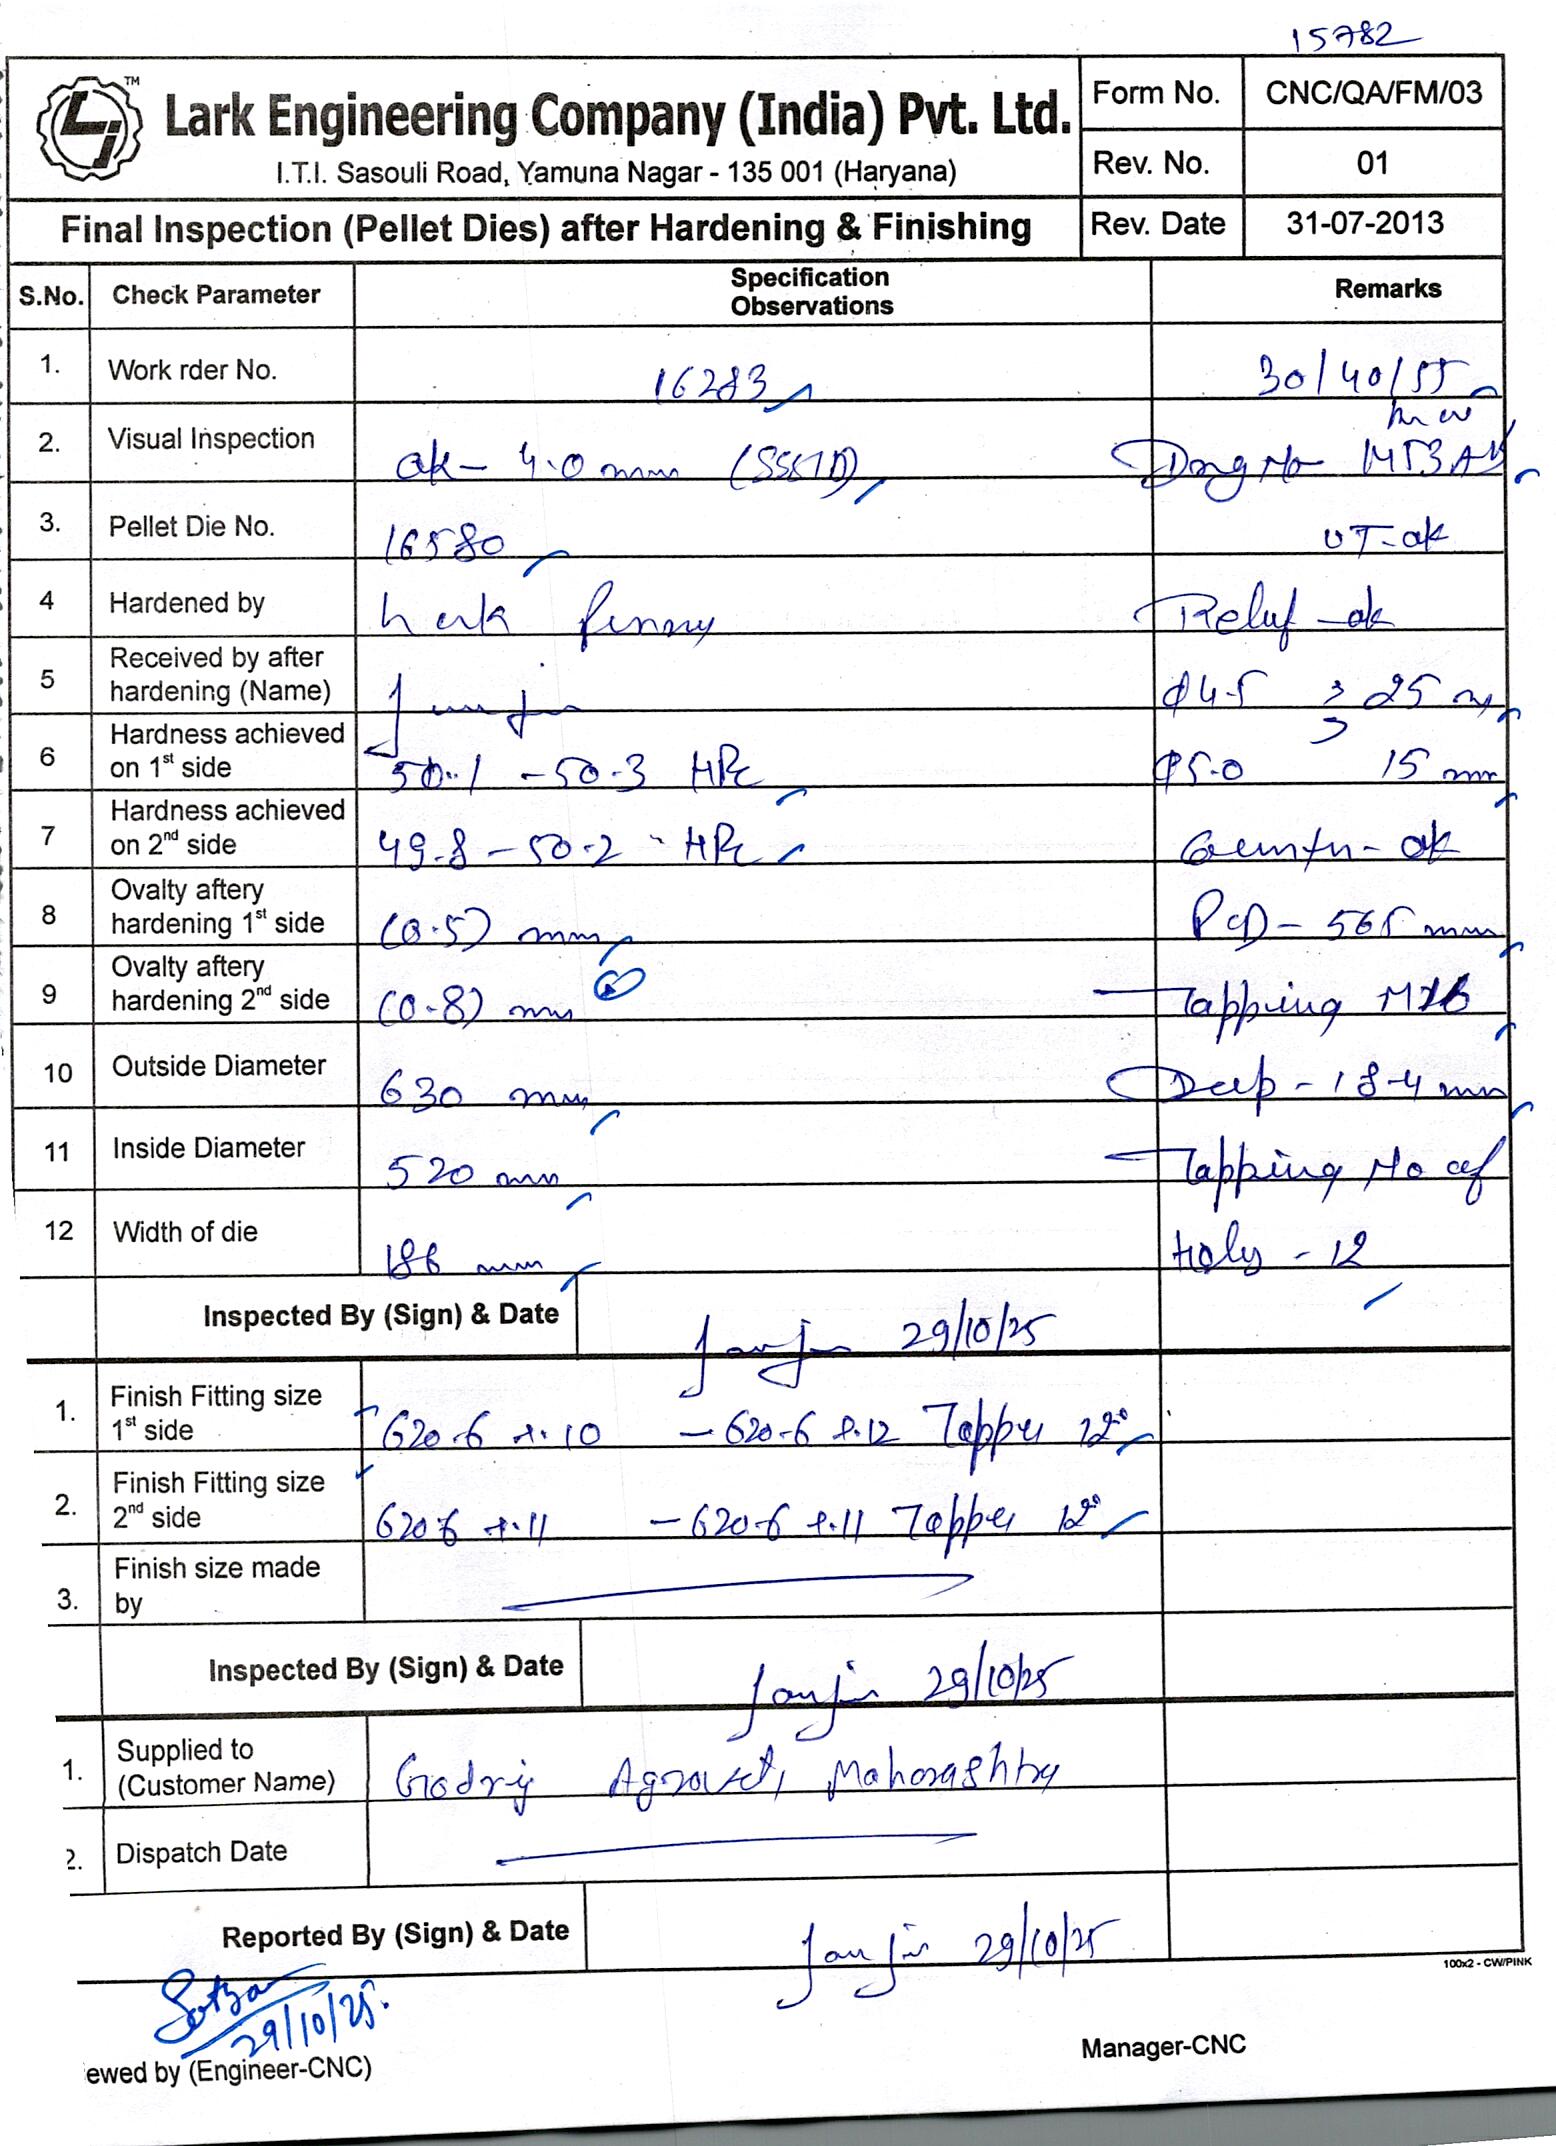 15782
TM
Lark Engineering Company (India) Pvt. Ltd.
I.T.I. Sasouli Road, Yamuna Nagar - 135 001 (Haryana)
Form No. CNC/QA/FM/03
Rev. No. 01
Final Inspection (Pellet Dies) after Hardening & Finishing
Rev. Date 31-07-2013
S.No. Check Parameter Specification Observations Remarks
1. Work rder No. 16283 30/40/55
2. Visual Inspection ok- 4.0 mm Drg No
3. Pellet Die No. 16580 UT-ok
4 Hardened by Relief -ok
5 Received by after hardening (Name) φ4.5 25
6 Hardness achieved on 1st side 50.1 - 50.3 HRc φ5.0 15 mm
7 Hardness achieved on 2nd side 49.8 - 50.2 HRc - ok
8 Ovalty aftery hardening 1st side (0.5) mm PCD - 565 mm
9 Ovalty aftery hardening 2nd side (0.8) mm Tapping
10 Outside Diameter 630 mm Deep - 18.4 mm
11 Inside Diameter 520 mm Tapping No of
12 Width of die 186 mm Holes - 12
Inspected By (Sign) & Date 29/10/25
1. Finish Fitting size 1st side 620.6 +.10 - 620.6 +.12 Tapper 12°
2. Finish Fitting size 2nd side 620.6 +.11 - 620.6 +.11 Tapper 12°
3. Finish size made by
Inspected By (Sign) & Date 29/10/25
1. Supplied to (Customer Name) Godrej Agrovet, Maharashtra
2. Dispatch Date
Reported By (Sign) & Date 29/10/25
100x2 - CW/PINK
29/10/25.
ewed by (Engineer-CNC)
Manager-CNC